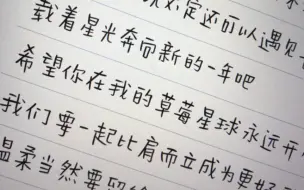 定还可以遇见
载着星光奔向新的一年吧
希望你在我的草莓星球永远开
我们要一起比肩而立成为更好
温柔当然要留给